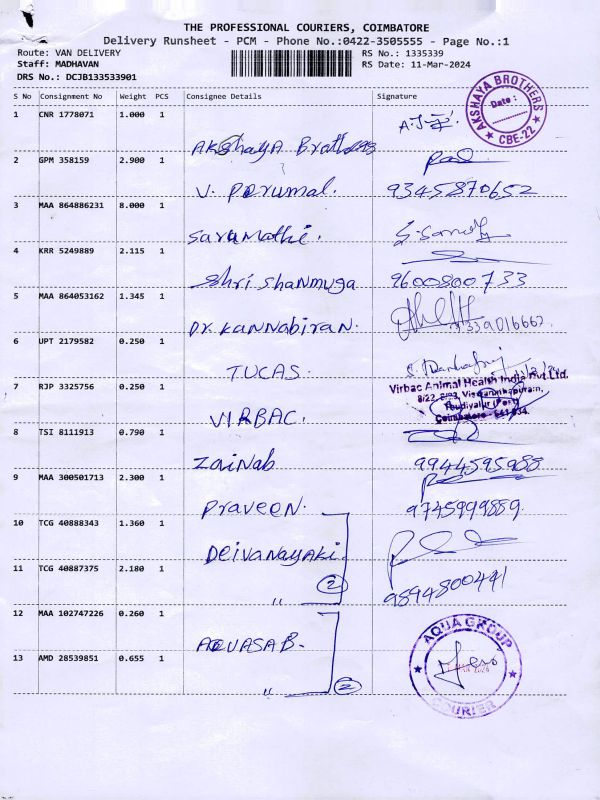 THE PROFESSIONAL COURIERS, COIMBATORE
Delivery Runsheet - PCM - Phone No.:0422-3505555 - Page No.:1
Route: VAN DELIVERY RS No.: 1335339
Staff: MADHAVAN RS Date: 11-Mar-2024
DRS No.: DCJB133533901
S No Consignment No Weight PCS Consignee Details Signature
1 CNR 1778071 1.000 1 Akshaya Brothers
AKSHAYA BROTHERS
Date :
CBE-22
2 GPM 358159 2.900 1 V. Perumal. 9345870652
3 MAA 864886231 8.000 1 Saramathi.
4 KRR 5249889 2.115 1 Shri Shanmuga 9600800733
5 MAA 864053162 1.345 1 Dr. Kannabiran.
6 UPT 2179582 0.250 1 TUCAS.
7 RJP 3325756 0.250 1 VIRBAC.
Virbac Animal Health India Pvt.Ltd.
8 TSI 8111913 0.790 1 Zainab 9944595988
9 MAA 300501713 2.300 1 Praveen. 9745999889.
10 TCG 40888343 1.360 1 Deivanayaki.
11 TCG 40887375 2.180 1 " 2 9894800441
12 MAA 102747226 0.260 1 AQUASAB.
13 AMD 28539851 0.655 1 " 2
AQUA GROUP
COURIER